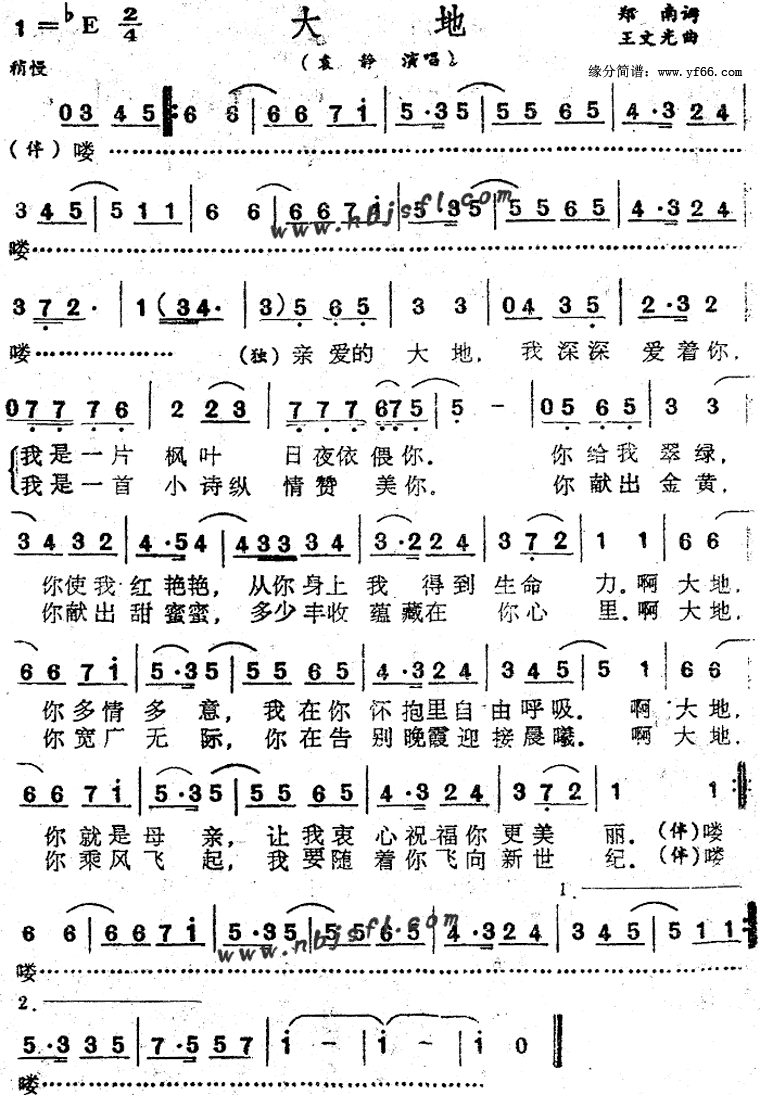 1=♭E 2/4 大 地 郑 南词
王文光曲
稍慢 (袁 静 演唱)
缘分简谱：www.yf66.com
03 45 6 6 66 71 5·35 55 65 4·324
(伴)喽
3 45 5 11 6 6 66 71 5·35 5565 4·324
www.nbjsfl.com
喽
3 72· 1 (34· 3)5 65 3 3 04 35 2·32
喽 (独) 亲 爱的 大 地，我深深 爱着你，
077 76 2 23 777 675 5 - 05 65 3 3
我是一片 枫叶 日夜依偎你. 你给我 翠绿，
我是一首 小诗纵 情赞 美你. 你献出 金黄，
3432 4·54 43334 3·224 372 1 1 66 6
你使我红艳艳，从你身上我 得到生命 力.啊大地，
你献出甜蜜蜜，多少丰收 蕴藏在 你心 里.啊大地，
66 71 5·35 55 65 4·324 345 5 1 66 6
你多情多 意，我在你 怀抱里自由呼吸. 啊大地，
你宽广无 际，你在告 别晚霞迎接晨曦. 啊大地，
66 71 5·35 55 65 4·324 372 1 1
你就是母 亲，让我衷 心祝福你更美 丽.(伴)喽
你乘风飞 起，我要随 着你飞向新世 纪.(伴)喽
1.
6 6 66 71 5·35 5565 4·324 345 511
www.nbjsfl.com
喽
2.
5·335 7·557 1 - 1 - 1 0
喽